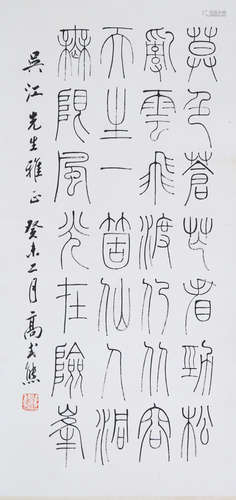 莫色蒼茫看勁松
亂雲飛渡仍从容
天生一箇仙人洞
無限風光在險峯
吳江先生雅正 癸未二月 高式熊